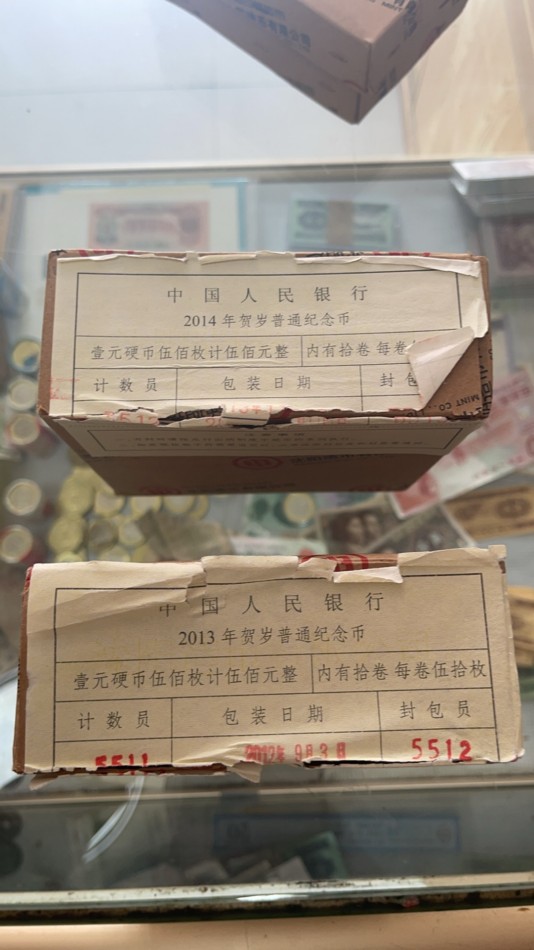 中国人民银行
2014年贺岁普通纪念币
壹元硬币伍佰枚计伍佰元整 内有拾卷 每卷
计数员 包装日期 封包
MINT CO.,
中国人民银行
2013年贺岁普通纪念币
壹元硬币伍佰枚计伍佰元整 内有拾卷 每卷伍拾枚
计数员 包装日期 封包员
5511 2012年9月3日 5512